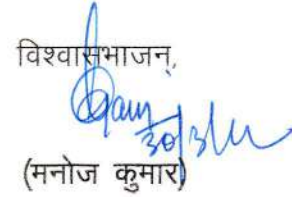 विश्वासभाजन,
30/3/
(मनोज कुमार)